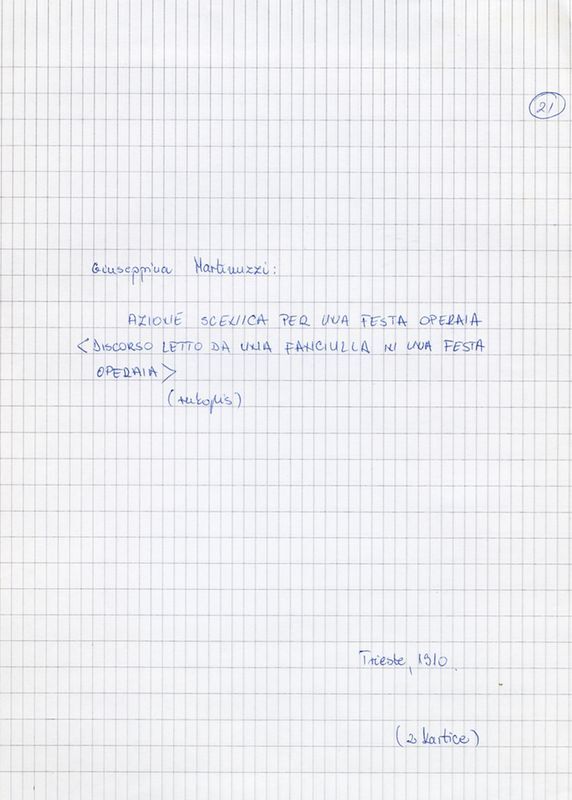 21
Giuseppina Martinuzzi:
AZIONE SCENICA PER UNA FESTA OPERAIA
<DISCORSO LETTO DA UNA FANCIULLA IN UNA FESTA
OPERAIA>
(rukopis)
Trieste, 1910.
(2 kartice)